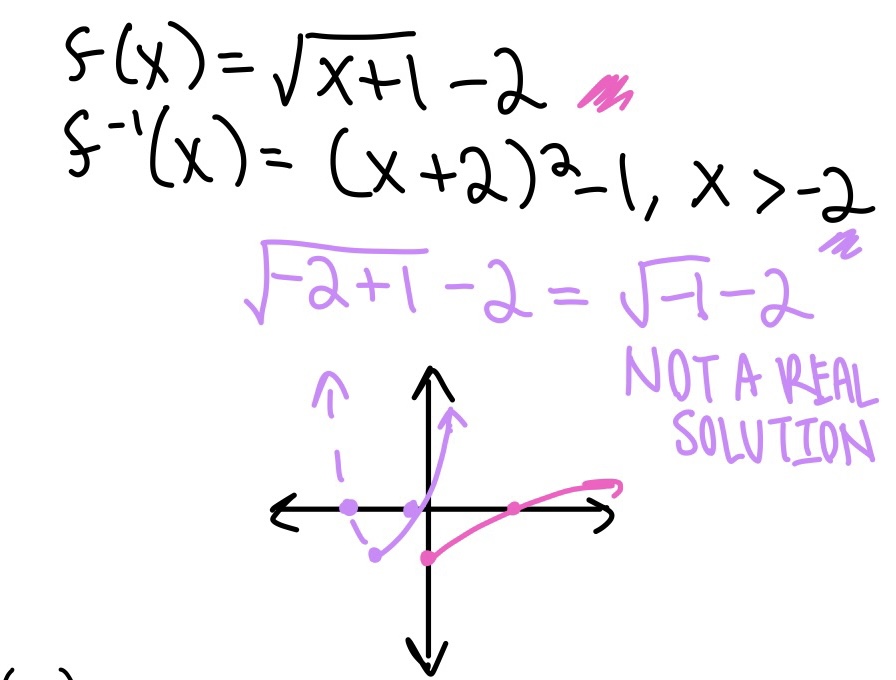 f(x) = √(x+1) - 2
f⁻¹(x) = (x+2)² - 1, x > -2
√(-2+1) - 2 = √(-1) - 2
NOT A REAL
SOLUTION